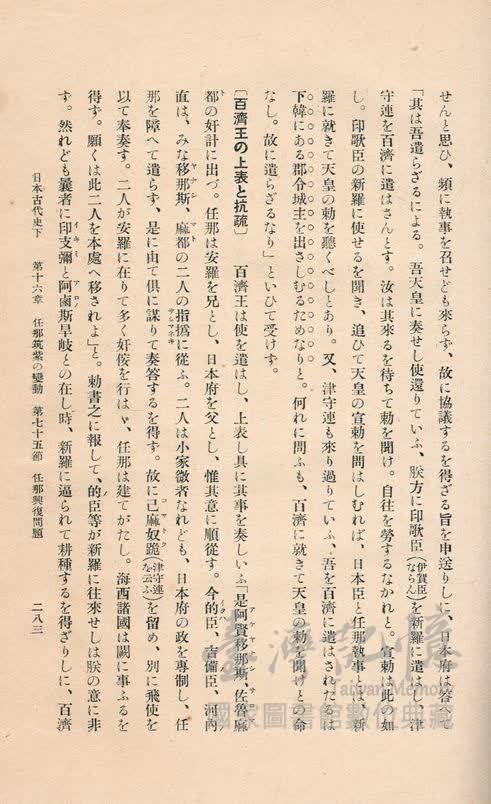 せんと思ひ、頻に執事を召せども來らず、故に協議するを得ざる旨を申送りしに、日本府は答へて
「其は吾遣らざるによる。吾天皇に奏せし使還りていふ、朕方に印歌臣(伊賀臣ならん)を新羅に遣はし、津
守連を百濟に遣はさんとす。汝は其來るを待ちて勅を聞け。自往を勞するなかれと、宣勅は此の如
し。印歌臣の新羅に使せるを聞き、追ひて天皇の宣勅を問はしむれば、日本臣と任那執事とは、新
羅に就きて天皇の勅を聽くべしとあり。又、津守連も來り過りていふ、吾を百濟に遣はされたるは
下韓にある郡令城主を出さしむるためなりと。何れに問ふも、百濟に就きて天皇の勅を聞けとの命
なし。故に遣らざるなり」といひて受けず。
〔百濟王の上表と抗疏〕 百濟王は使を遣はし、上表し具に其事を奏しいふ「是阿賢移那斯、佐魯麻
都の奸計に出づ。任那は安羅を兄とし、日本府を父とし、惟其意に順從す。今的臣、吉備臣、河內
直は、みな移那斯、麻都の二人の指撝に從ふ。二人は小家微者なれども、日本府の政を專制し、任
那を障へて遣らず、是に由て俱に謀りて奏答するを得す。故に己麻奴跪(津守連な云ふ)を留め、別に飛使を
以て奉奏す。二人が安羅に在りて多く奸佞を行はゞ、任那は建てがたし。海西諸國は闕に事ふるを
得ず。願くは此二人を本處へ移されよ」と。勅書之に報して、的臣等が新羅に往來せしは朕の意に非
す。然れども曩者に印支彌と阿鹵斯旱岐との在し時、新羅に逼られて耕種するを得ざりしに、百濟
日本古代史下 第十六章 任那筑紫の變動 第七十五節 任那興復問題 二八三
臺灣記憶
Taiwan Memory
國家圖書館數位典藏